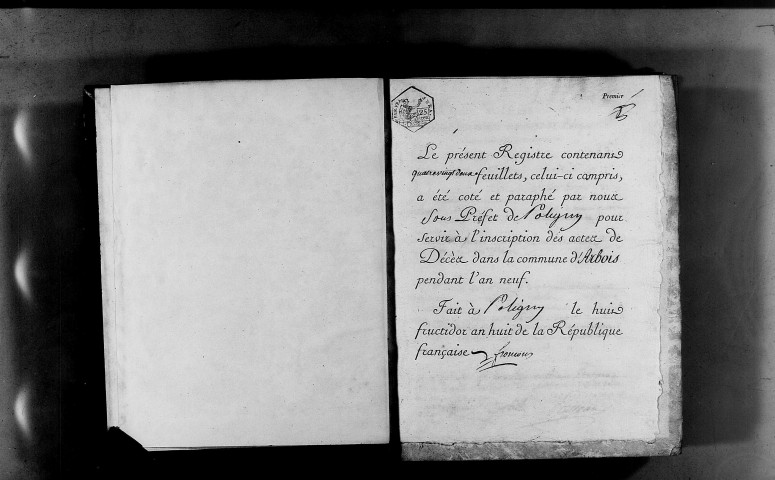 Premier
Le présent Registre contenant
quatrevingt douze feuillets, celui-ci compris,
a été coté et paraphé par nous
Sous Préfet de Poligny pour
servir à l'inscription des actes de
Décès dans la commune d'Arbois
pendant l'an neuf.
Fait à Poligny le huit
fructidor an huit de la République
française